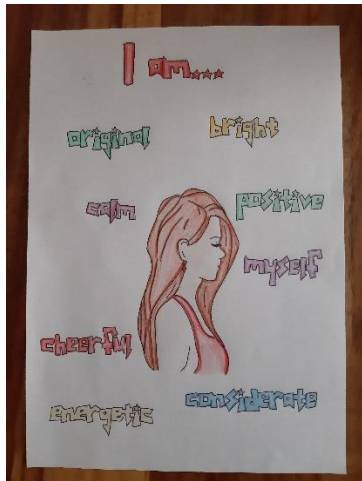 I am...
original
bright
calm
positive
myself
cheerful
considerate
energetic